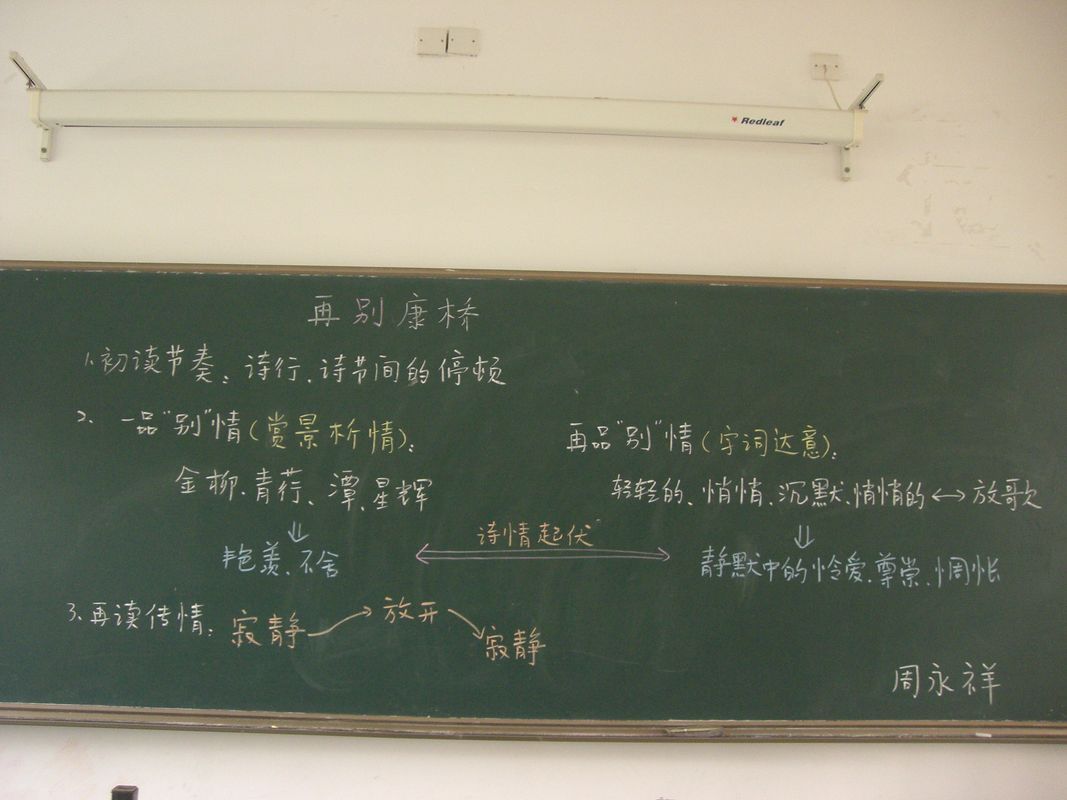 Redleaf
再别康桥
1、初读节奏：诗行、诗节间的停顿
2、一品"别"情(赏景析情)：
金柳、青荇、潭、星辉
⇓
艳羡、不舍
再品"别"情(字词达意)：
轻轻的、悄悄、沉默、悄悄的↔放歌
⇓
静默中的怜爱、尊崇、惆怅
诗情起伏
3、再读传情：寂静→放开→寂静
周永祥